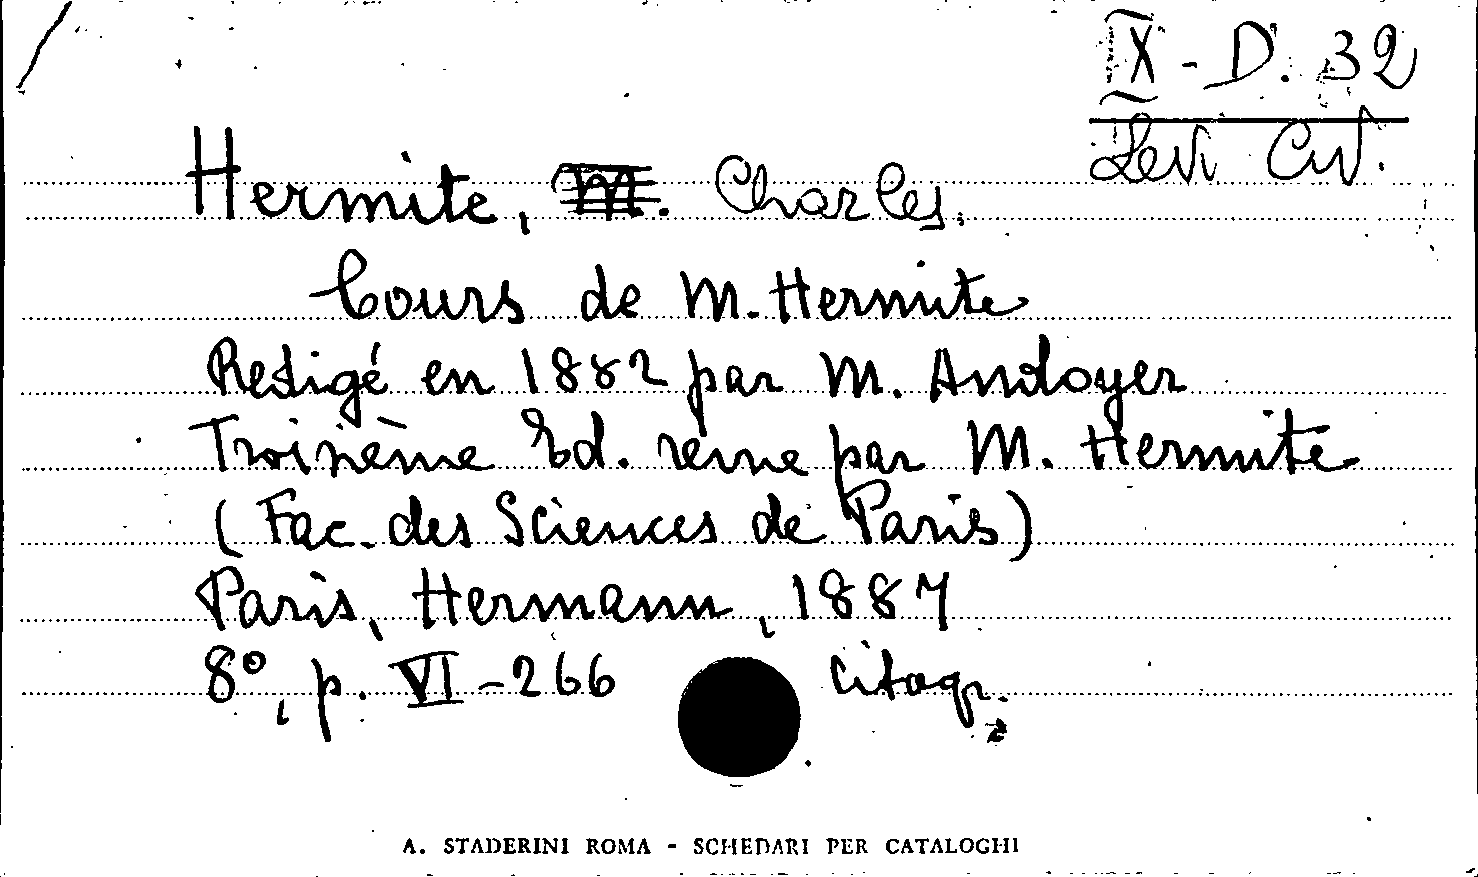 IX - D. 32
Levi Civ.
Hermite, M. Charles.
Cours de M. Hermite
Redigé en 1882 par M. Andoyer
Troisième Ed. revue par M. Hermite
(Fac. des Sciences de Paris)
Paris, Hermann, 1887
8°, p. VI - 266
A. STADERINI ROMA - SCHEDARI PER CATALOGHI